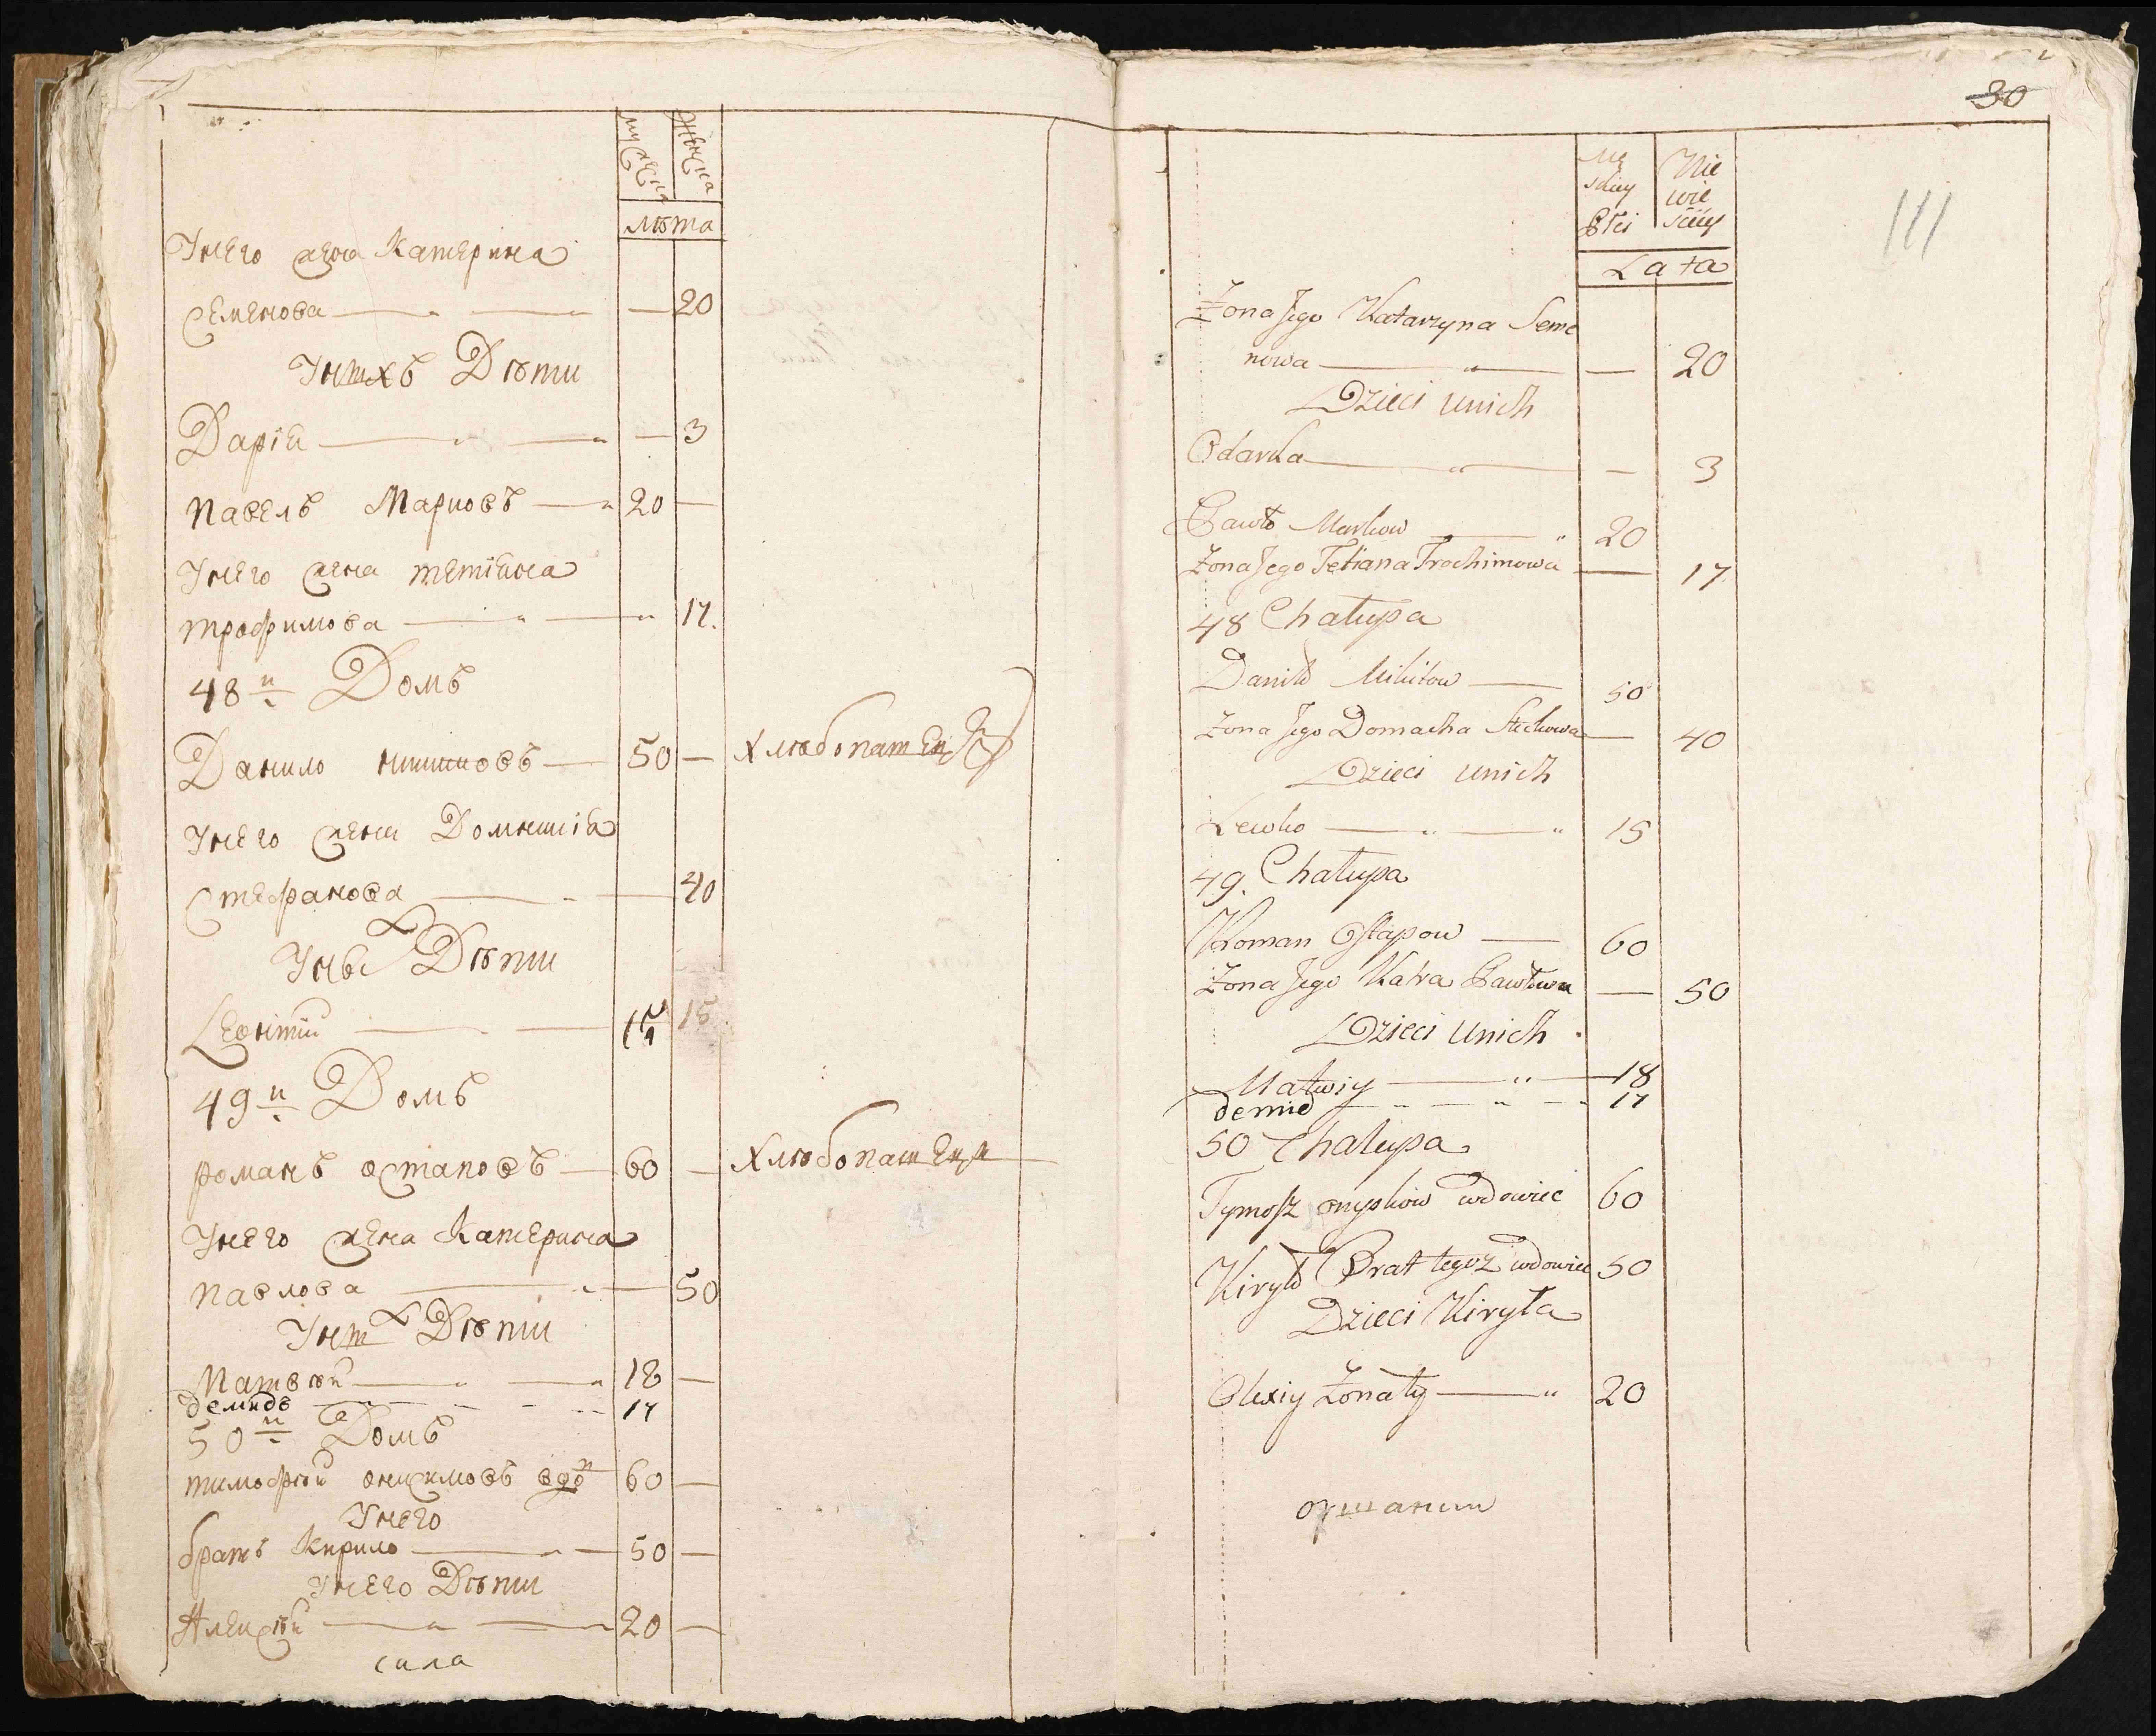 мужеска
женска
лѣта
У него жена Катерина
Семенова 20
У нихъ Дѣти
Дарія 3
Павелъ Марковъ 20
У него жена Тетіана
Трофимова 17.
48й Домъ
Данило Никитовъ 50 Хлѣбопашецъ
У него жена Домникія
Стефанова 40
У них Дѣти
Леонтій 15 15
49й Домъ
Романъ Остаповъ 60 Хлѣбопашецъ
У него жена Катерина
Павлова 50
У них Дѣти
Матвѣй 18
Демидъ 17
50й Домъ
Тимофѣй Онисимовъ вдо 60
У него
братъ Кирило 50
У него Дѣти
Алексѣй 20
села
30
Mę
skiey
Płci
Nie
wie
sciiey
Lata
111
Żona Jego Katarzyna Seme
nowa 20
Dzieci unich
Odarka 3
Pawło Markow 20
Żona Jego Tetiana Trochimowa 17.
48 Chałupa
Daniło Mikitow 50
Żona Jego Domacha Stechowa 40
Dzieci unich
Lewko 15
49. Chałupa
Roman Ostapow 60
Żona Jego Katra Pawłowa 50
Dzieci Unich
Matwiy 18
demid 17
50 Chałupa
Tymosz onyskow wdowiec 60
Kiryło Brat tegoż wdowiec 50
Dzieci Kiryła
Olexiy Żonaty 20